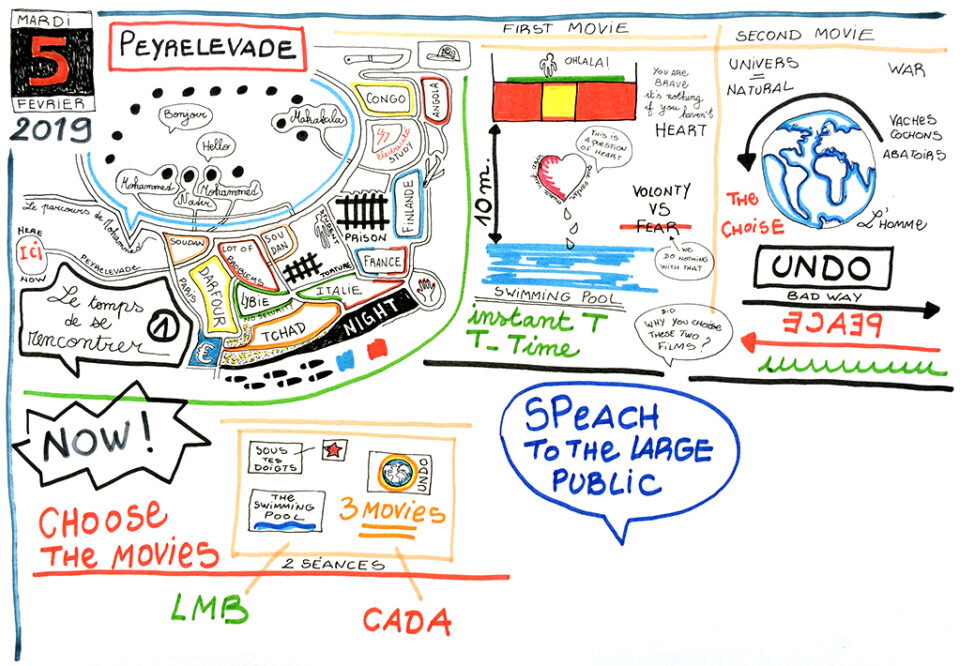 MARDI
5
FÉVRIER
2019
PEYRELEVADE
Bonjour
Hello
Makakala
Mohammed
Nader
Mohammed
Le parcours de Mohammed
HERE
Ici
NOW
PEYRELEVADE
PARIS
Le temps
de se
rencontrer
1
SOUDAN
DARFOUR
€
LOT OF
PROBLEMS
SOU
DAN
LYBIE
NO SECURITY
TCHAD
ACCIDENT
TORTURE
PRISON
ITALIE
FRANCE
NIGHT
FINLANDE
CONGO
ANGOLA
électricité
STUDY
FIRST MOVIE
OHLALA!
YOU ARE
BRAVE
it's nothing
if you haven't
HEART
10m.
THIS IS
A QUESTION
OF HEART
VOLONTY
VS
FEAR
WE
DO NOTHING
WITH THAT
SWIMMING POOL
instant T
T-Time
DID
WHY YOU CHOOSE
THESE TWO
FILMS?
SECOND MOVIE
UNIVERS
=
NATURAL
WAR
VACHES
COCHONS
ABATOIRS
THE
CHOISE
L'Homme
UNDO
BAD WAY
PEACE
NOW!
CHOOSE
THE MOVIES
SOUS
TES
DOIGTS
UNDO
THE
SWIMMING
POOL
3 MOVIES
2 SÉANCES
LMB
CADA
SPEACH
TO THE LARGE
PUBLIC